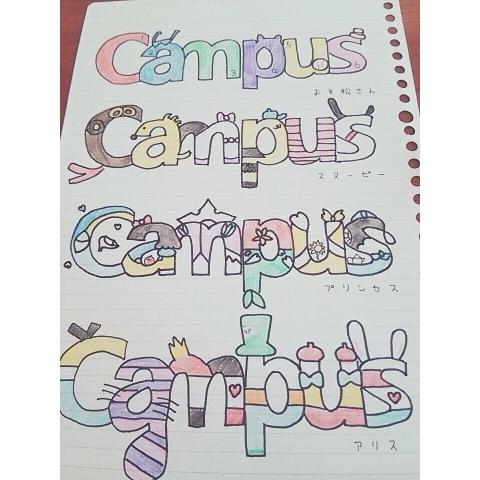 Campus
おそ松さん
Campus
スヌーピー
Campus
プリンセス
Campus
アリス